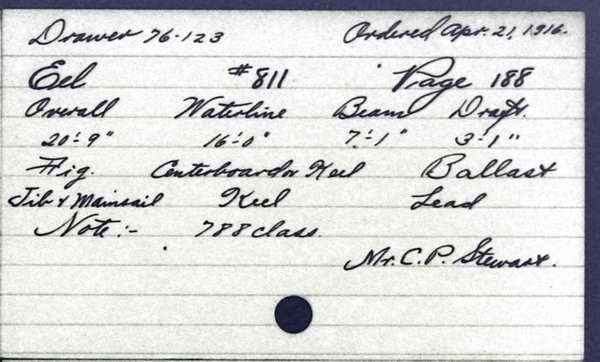 Drawer 76-123 Ordered Apr. 21, 1916.
Eel #811 Page 188
Overall Waterline Beam Draft.
20'-9" 16'-0" 7'-1" 3'-1"
Rig. Centerboard or Keel Ballast
Jib & Mainsail Keel Lead
Note:- 788 class.
Mr. C. P. Stewart.